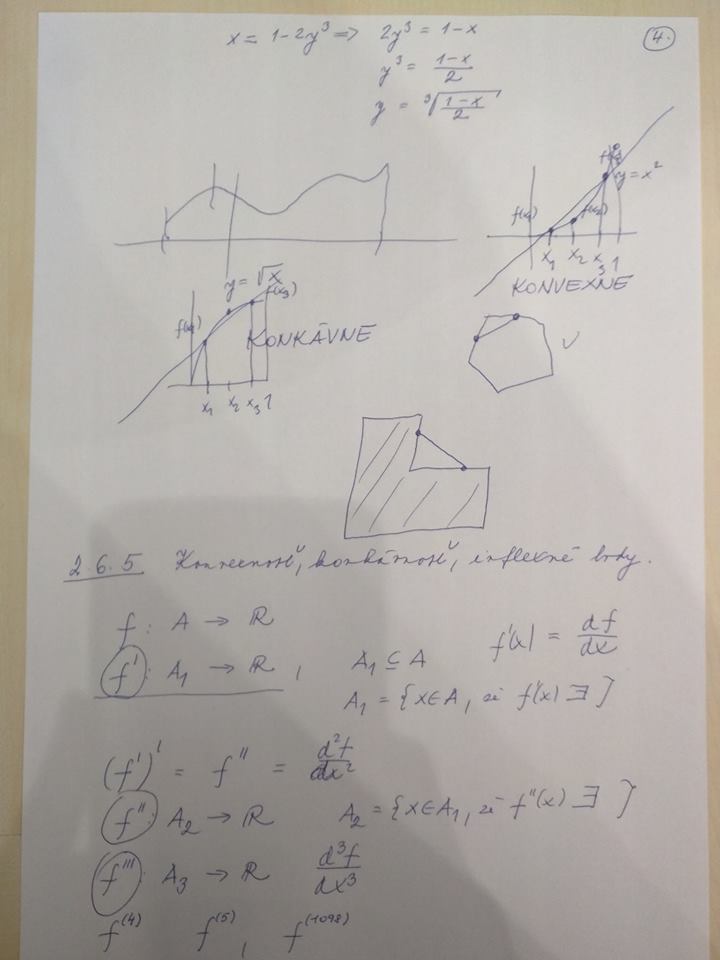 4.
x = 1 - 2y³ => 2y³ = 1 - x
y³ = (1-x)/2
y = ∛((1-x)/2)
y = x²
f(x₁) f(x₂)
x₁ x₂ x₃ 1
KONVEXNÉ
y = √x
f(x₁) f(x₃)
KONKÁVNE
x₁ x₂ x₃ 1
2.6.5 Konvexnosť, konkávnosť, inflexné body.
f: A → ℝ
f'(x) = df/dx
f': A₁ → ℝ, A₁ ⊆ A
A₁ = {x∈A, že f'(x) ∃}
(f')' = f'' = d²f/dx²
f'': A₂ → ℝ A₂ = {x∈A₁, že f''(x) ∃}
f''': A₃ → ℝ d³f/dx³
f⁽⁴⁾ f⁽⁵⁾, f⁽¹⁰⁹⁸⁾